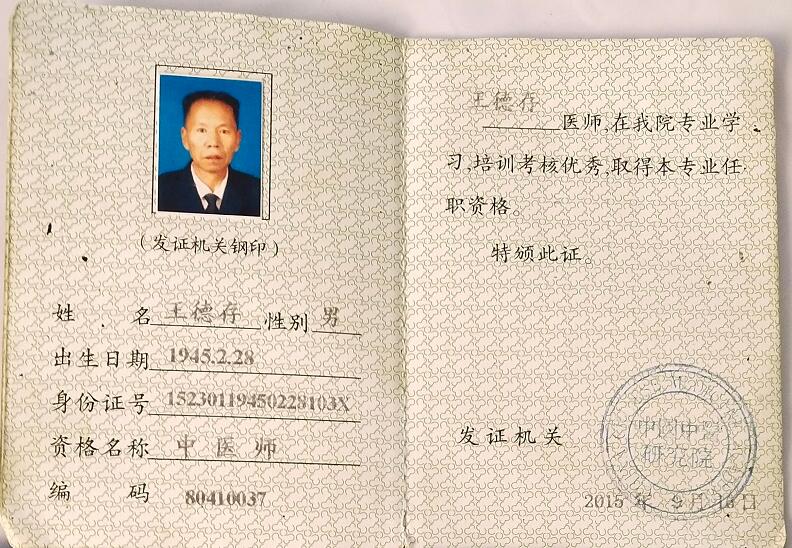 (发证机关钢印)
姓 名 王德存 性别 男
出生日期 1945.2.28
身份证号 15230119450228103X
资格名称 中医师
编 码 80410037
王德存
医师,在我院专业学
习,培训考核优秀,取得本专业任
职资格。
特颁此证。
发证机关
中国中医
研究院
2015 年 9 月 16 日